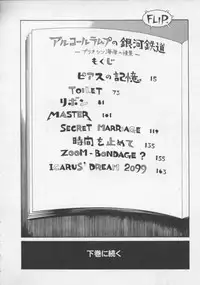 FLIP.
アルコールランプの銀河鉄道
もくじ
ピアスの記憶 15
TOILET 73
リボン 81
MASTER 101
SECRET MARRIAGE 119
時間を止めて 135
ZOOM-BONDAGE? 155
ICARUS' DREAM 2099 163
下巻に続く